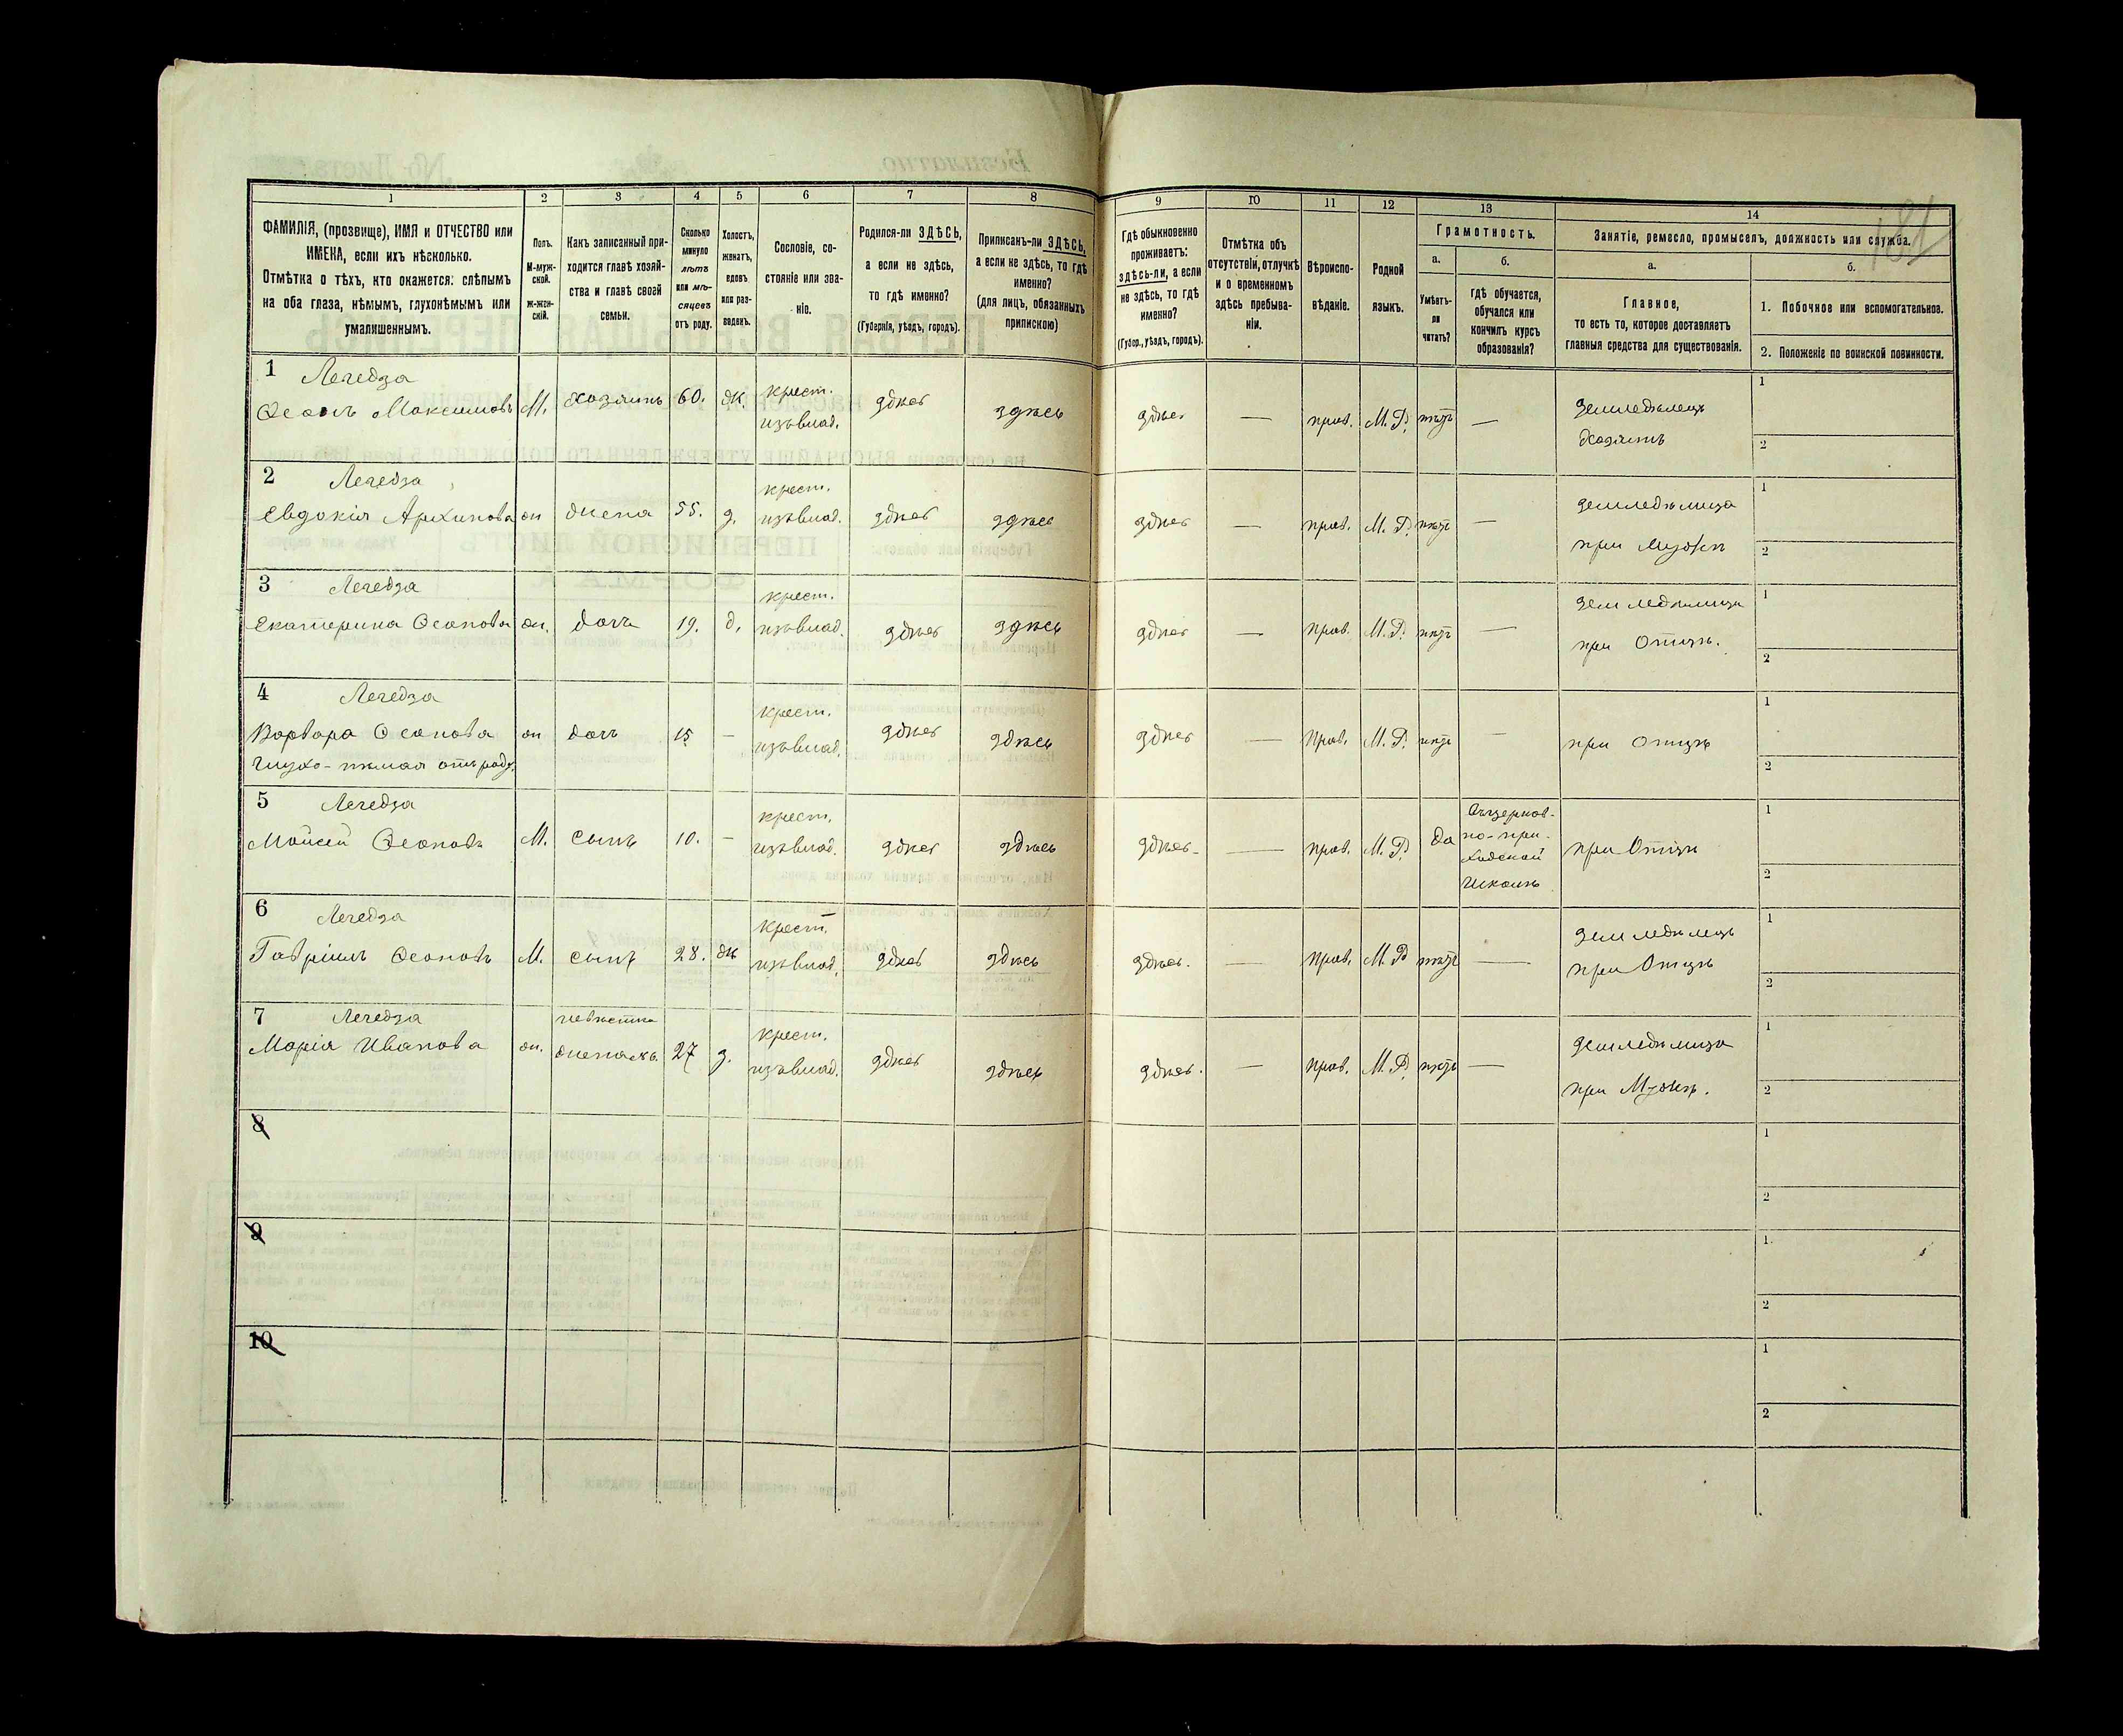 181
1 2 3 4 5 6 7 8 9 10 11 12 13 14
ФАМИЛІЯ, (прозвище), ИМЯ и ОТЧЕСТВО или
ИМЕНА, если ихъ нѣсколько.
Отмѣтка о тѣхъ, кто окажется: слѣпымъ
на оба глаза, нѣмымъ, глухонѣмымъ или
умалишеннымъ.
Полъ.
М-муж-
ской.
ж-жен-
скій.
Какъ записанный при-
ходится главѣ хозяй-
ства и главѣ своей
семьи.
Сколько
минуло
лѣтъ
или мѣ-
сяцевъ
отъ роду.
Холостъ,
женатъ,
вдовъ
или раз-
веденъ.
Сословіе, со-
стояніе или зва-
ніе.
Родился-ли ЗДѢСЬ,
а если не здѣсь,
то гдѣ именно?
(Губернія, уѣздъ, городъ).
Приписанъ-ли ЗДѢСЬ,
а если не здѣсь, то гдѣ
именно?
(для лицъ, обязанныхъ
припискою)
Гдѣ обыкновенно
проживаетъ:
здѣсь-ли, а если
не здѣсь, то гдѣ
именно?
(Губер., уѣздъ, городъ).
Отмѣтка объ
отсутствіи, отлучкѣ
и о временномъ
здѣсь пребыва-
ніи.
Вѣроиспо-
вѣданіе.
Родной
языкъ.
Грамотность.
а.
Умѣетъ-
ли
читать?
б.
гдѣ обучается,
обучался или
кончилъ курсъ
образованія?
Занятіе, ремесло, промыселъ, должность или служба.
а.
Главное,
то есть то, которое доставляетъ
главныя средства для существованія.
б.
1. Побочное или вспомогательное.
2. Положеніе по воинской повинности.
1 Легедза крест. 1
М. хозяинъ 60. ж. изъ влад. здѣсь здѣсь здѣсь — прав. М. Р. нѣтъ — Земледѣлецъ
Хозяинъ 2
2 Легедза крест. 1
Евдокія Архипова ж жена 55. з. изъ влад. здѣсь здѣсь здѣсь — прав. М. Р. нѣтъ — Земледѣлица
при Мужѣ 2
3 Легедза крест. Земледѣлица 1
Екатерина Осипова ж. дочь 19. д. изъ влад. здѣсь здѣсь здѣсь — прав. М. Р. нѣтъ —
при Отцѣ. 2
4 Легедза крест. 1
Варвара Осипова ж дочь 15 — изъ влад. здѣсь здѣсь здѣсь — прав. М. Р. нѣтъ — при Отцѣ
Глухо-нѣмая отъ роду. 2
5 Легедза крест. Въ церков- 1
Мойсей Осиповъ М. сынъ 10. — изъ влад. здѣсь здѣсь здѣсь — прав. М. Р. да но-при- при Отцѣ
ходской 2
школѣ
6 Легедза крест. Земледѣлецъ 1
Гавріилъ Осиповъ М. сынъ 28. ж изъ влад. здѣсь здѣсь здѣсь. — прав. М. Р нѣтъ — при Отцѣ 2
7 Легедза невѣстка крест. Земледѣлица 1
Марія Иванова ж. жена 27 з. изъ влад. здѣсь здѣсь здѣсь. — прав. М. Р. нѣтъ —
при Мужѣ. 2
8 1
2
9 1.
2
10 1
2